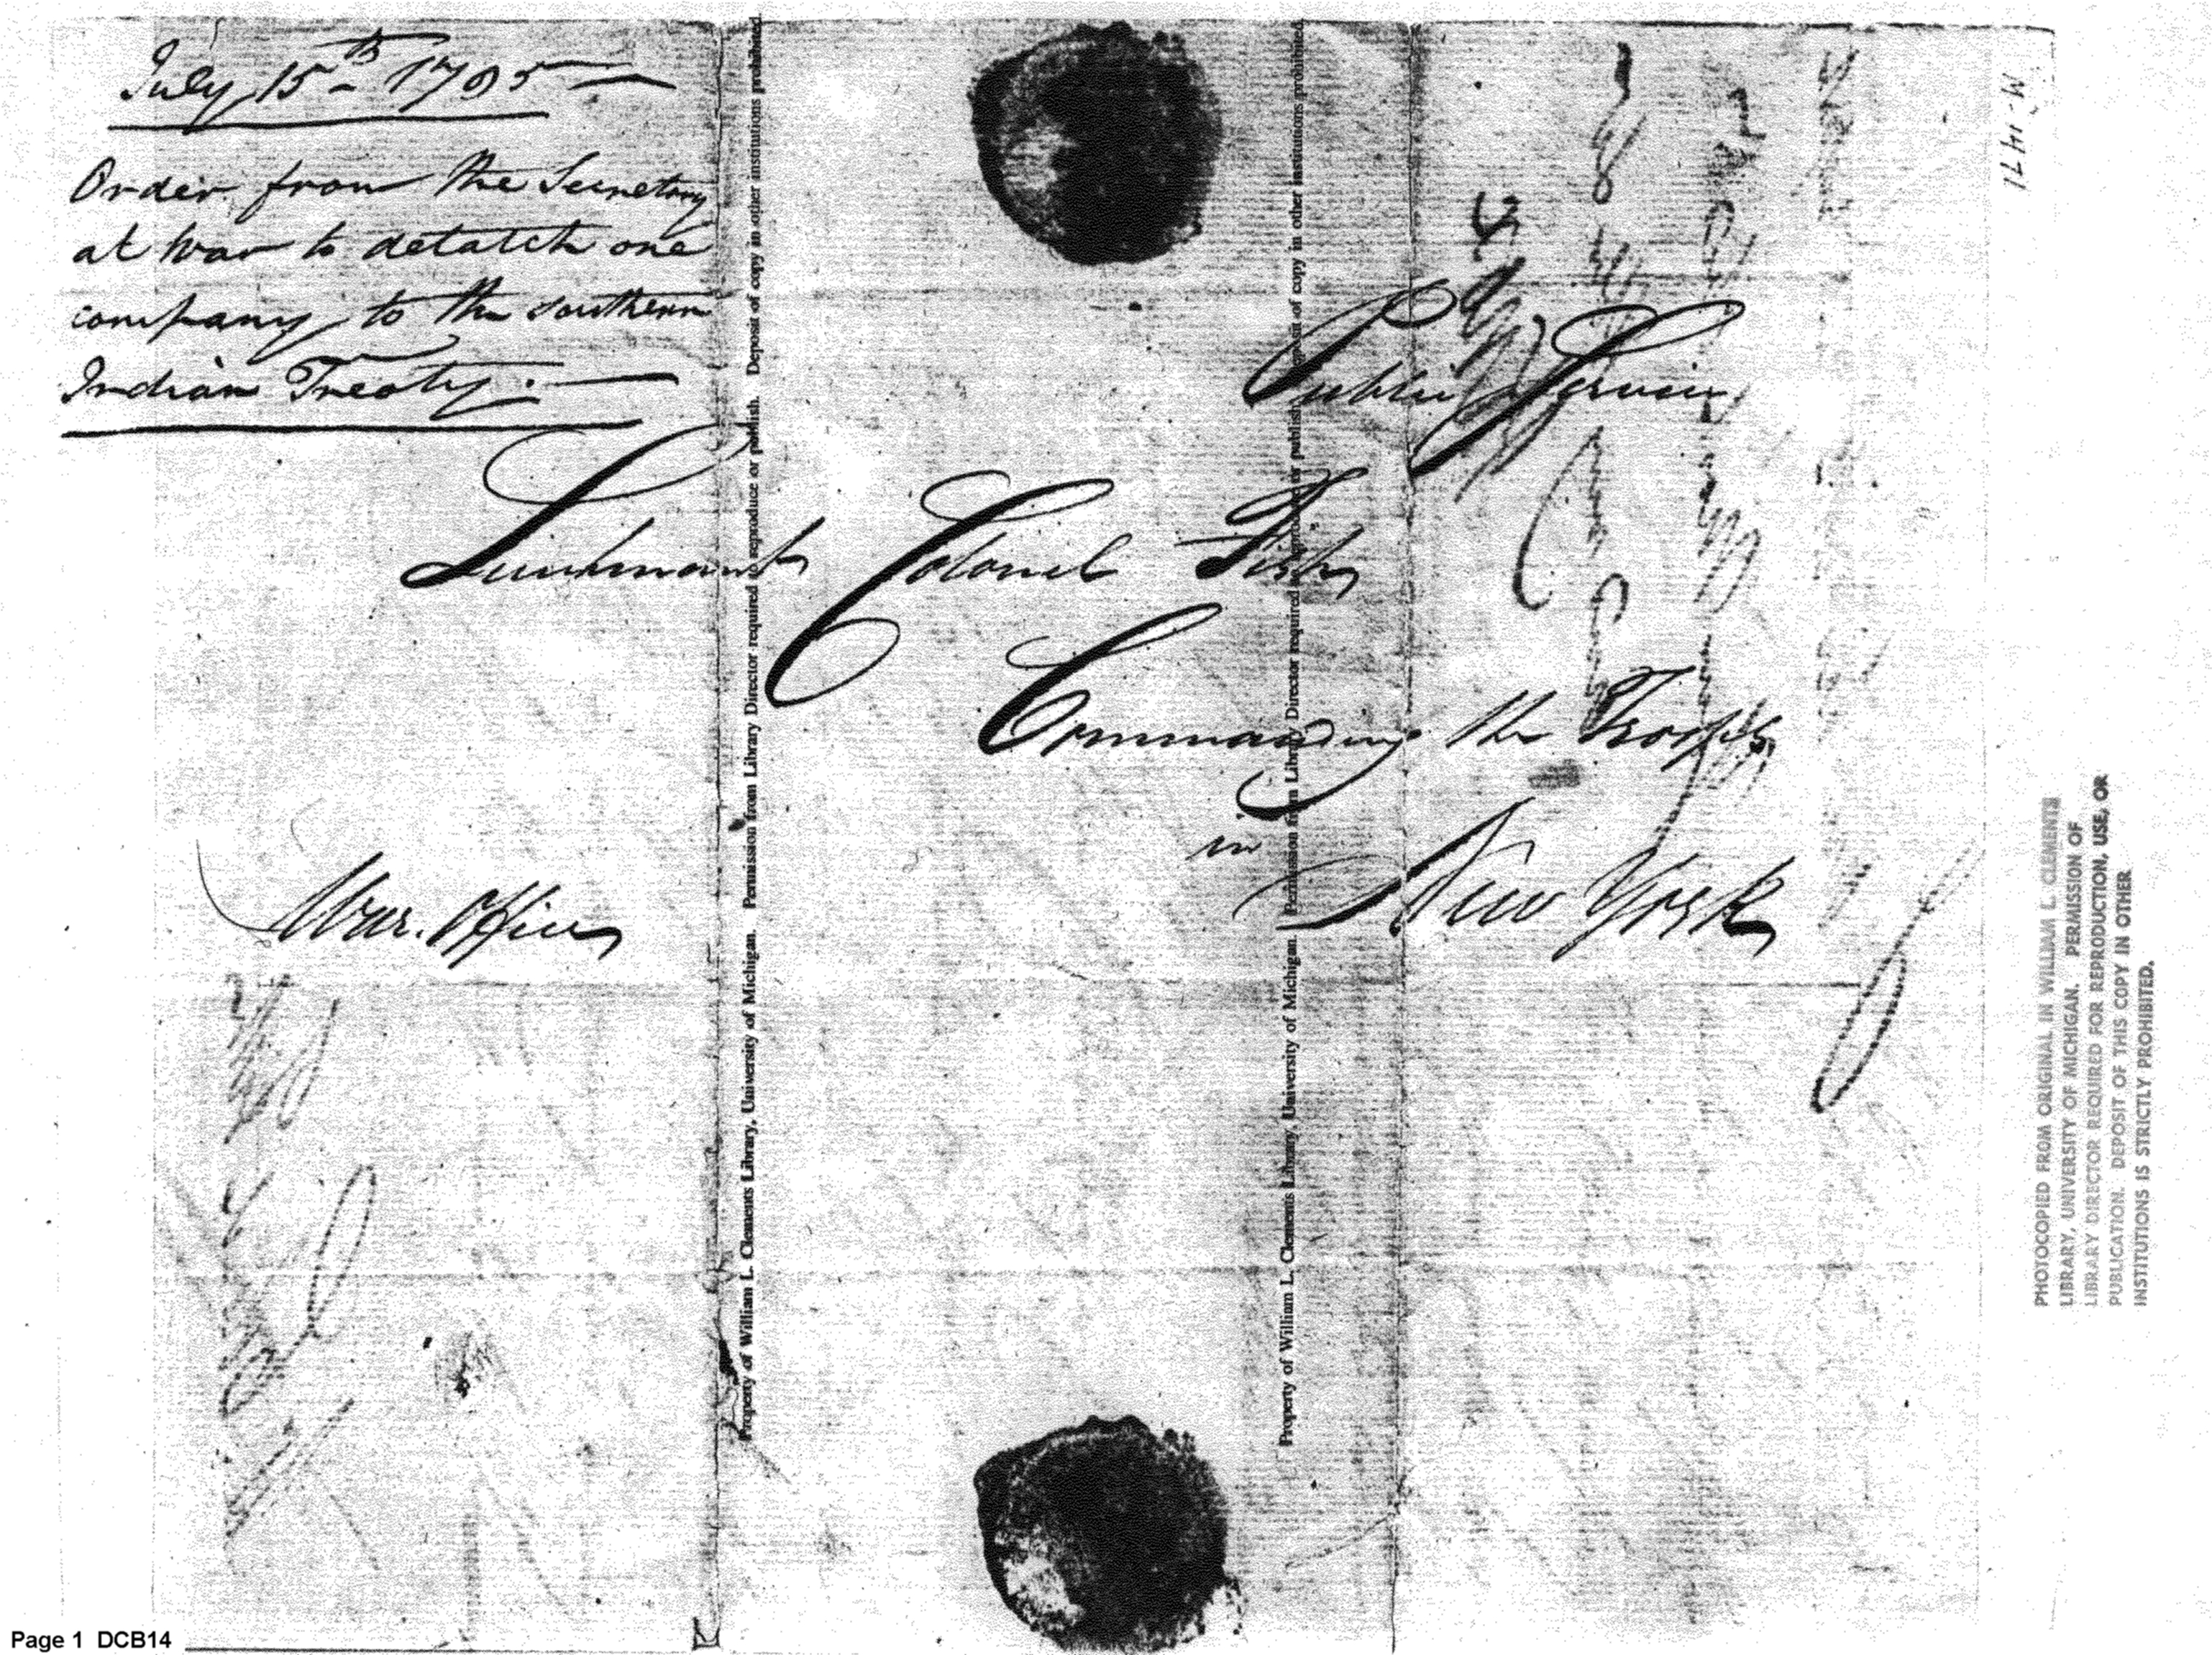 July 15th 1795
Order from the Secretary
at War to detatch one
company to the southern
Indian Treaty.
Public Service
Lieutenant Colonel Fish
Commanding the Troops
in
New York
War. Office
M-1471
Property of William L. Clements Library, University of Michigan. Permission from Library Director required to reproduce or publish. Deposit of copy in other institutions prohibited.
Property of William L. Clements Library, University of Michigan. Permission from Library Director required to reproduce or publish. Deposit of copy in other institutions prohibited.
PHOTOCOPIED FROM ORIGINAL IN WILLIAM L. CLEMENTS
LIBRARY, UNIVERSITY OF MICHIGAN. PERMISSION OF
LIBRARY DIRECTOR REQUIRED FOR REPRODUCTION, USE, OR
PUBLICATION. DEPOSIT OF THIS COPY IN OTHER
INSTITUTIONS IS STRICTLY PROHIBITED.
Page 1 DCB14